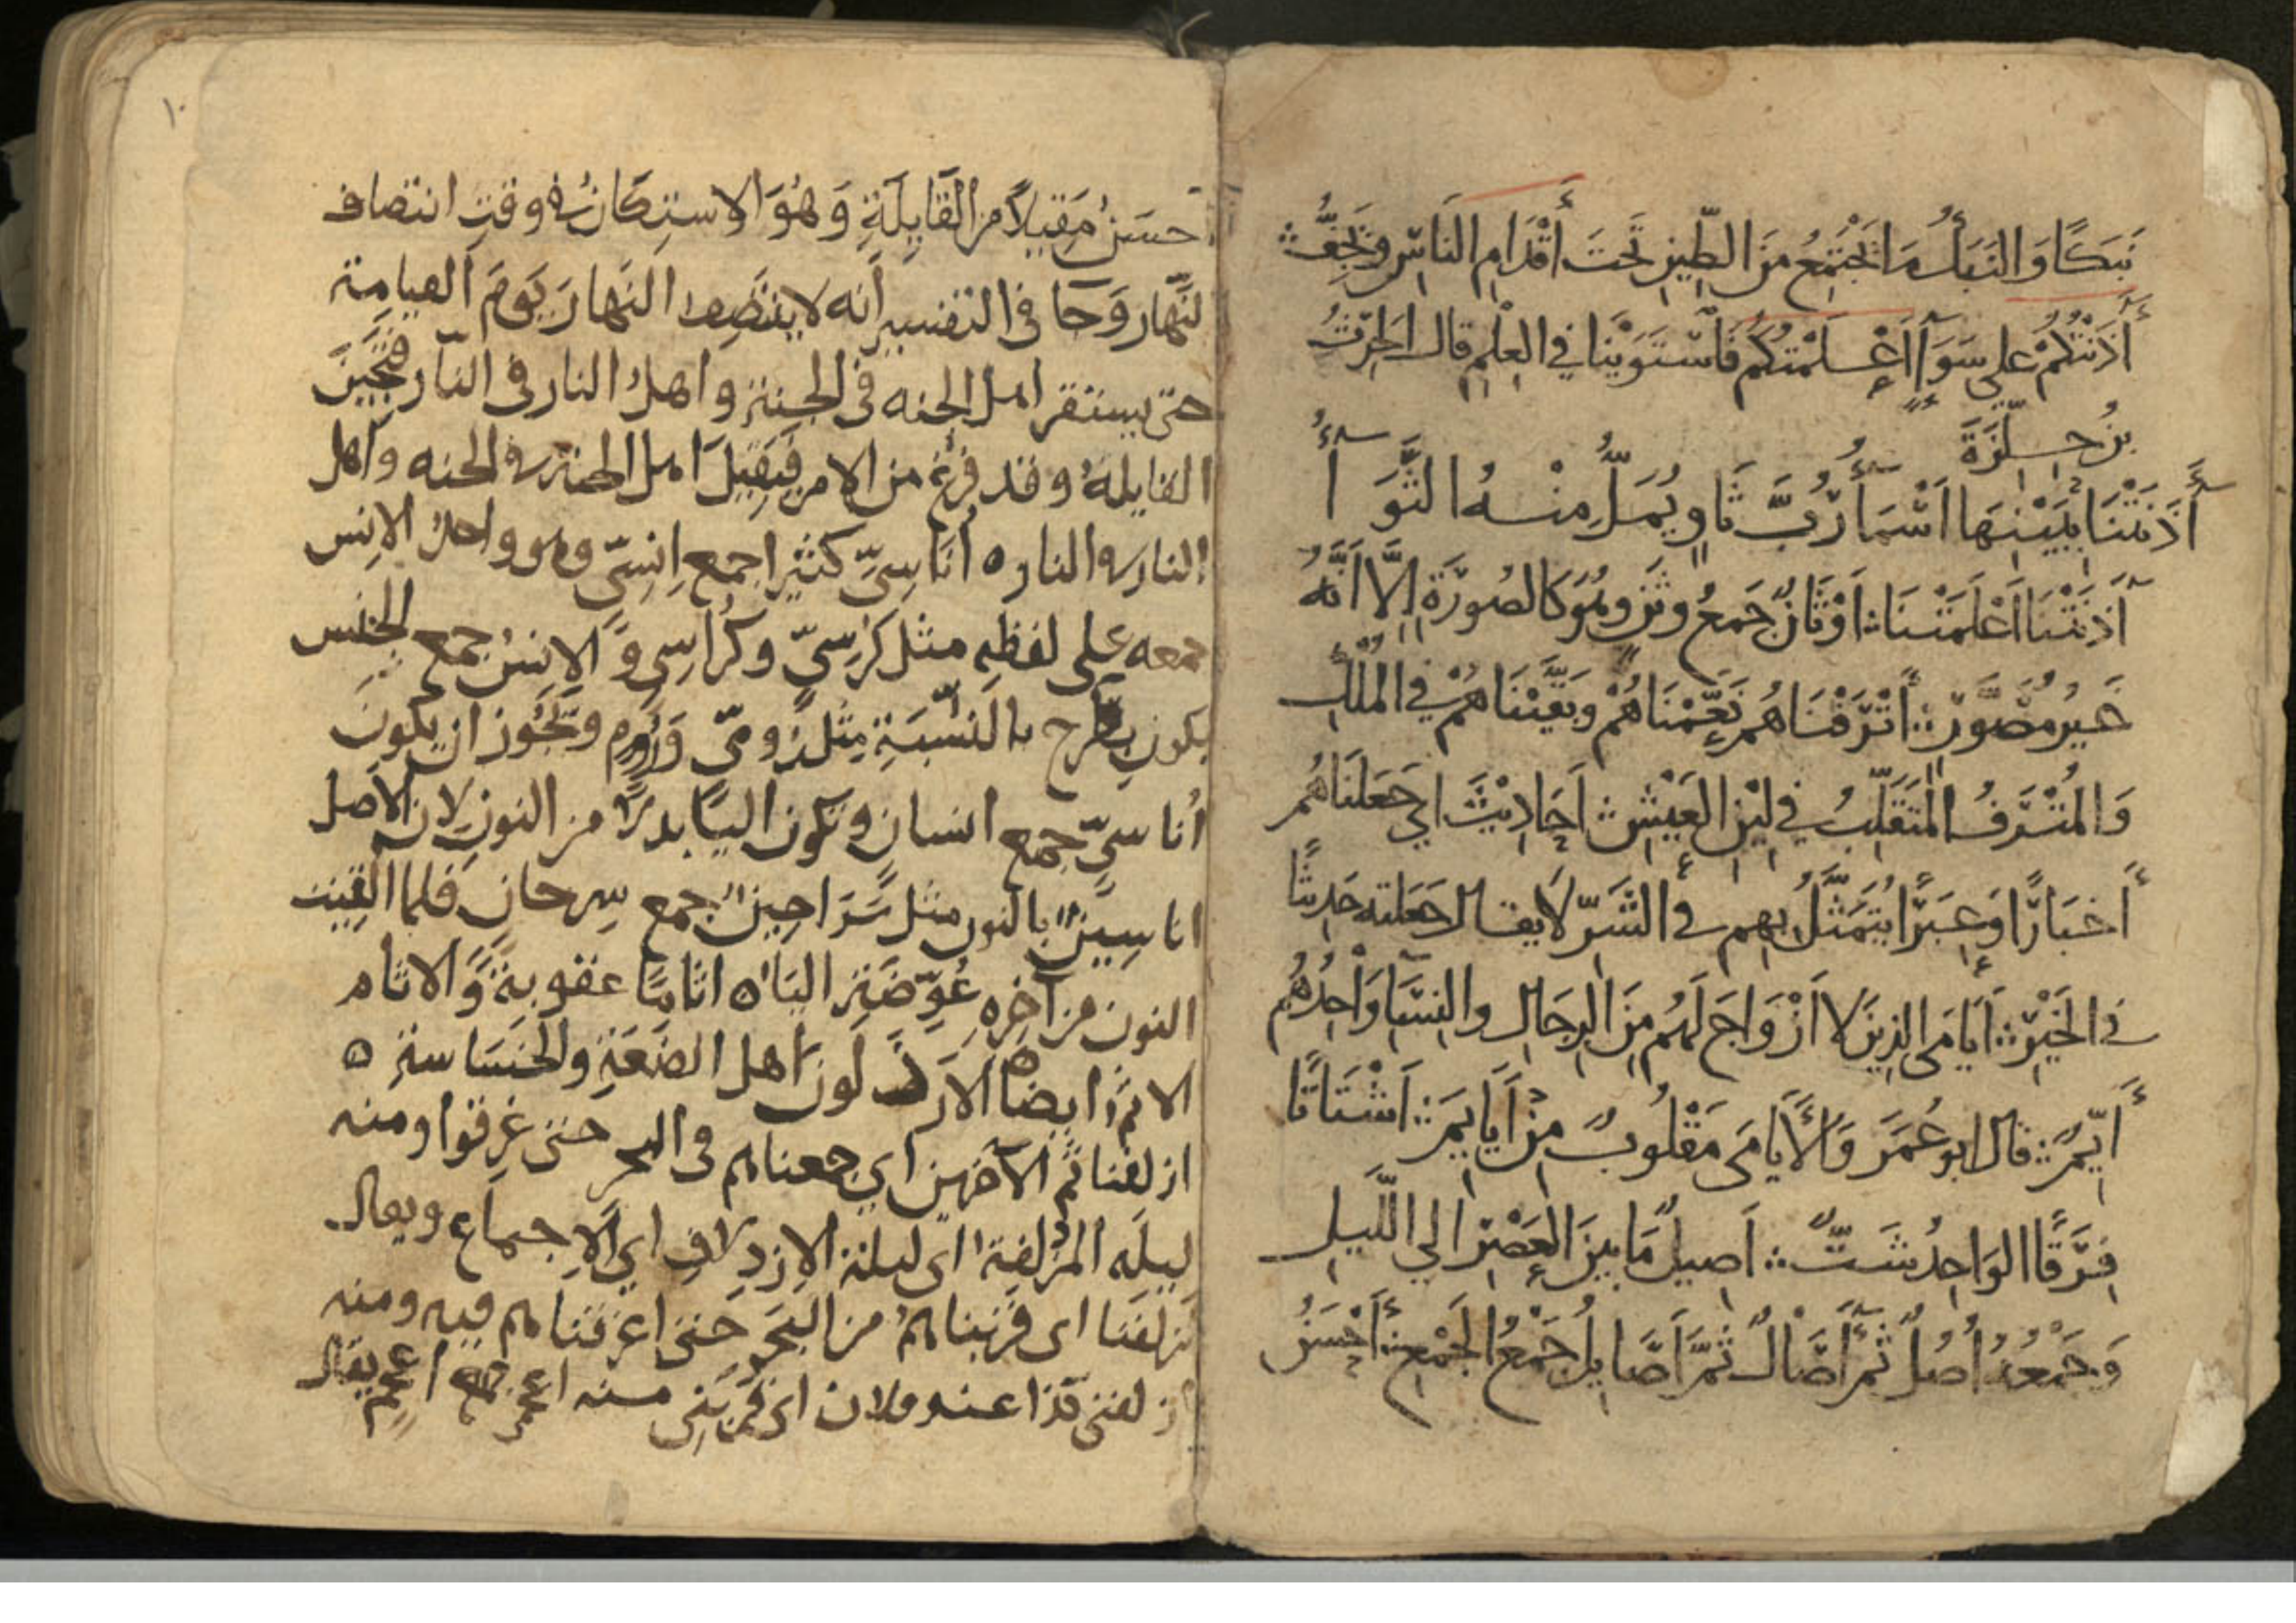 نَبَكًا وَالنَبَكُ مَا يَجْتَمِعُ مِنَ الطِّينِ تَحْتَ أَقْدَامِ النَاسِ وَيَجِفُّ ؞
آذَنْتُكُمْ عَلى سَوَآءٍ أَعْلَمْتُكُمْ فَاسْتَوَيْنَا فِي العِلْمِ قالَ الحٰرِثُ
بنُ حِلِّزَةَ
آذَنَتْنَا بِبَيْنِهَا أَسْمَآءُ رُبَّ ثَاوٍ يُمَلُّ مِنْهُ الثَّوَآءُ
آذَنَتْنَا أَعْلَمَتْنَا ؞ أَوْثَانٌ جَمعُ وَثَنٍ وهُوَ كَالصُورَةِ إلَّا أَنَّهُ
غَيرُ مُصَوَّرٍ ؞ أَتْرَفْنَاهُم نَعَّمْنَاهُمْ وَبَقَّيْنَاهُمْ فِي المُلْكِ
وَالمُتْرَفُ المُتَقَلِّبُ فِي لِيْنِ العَيْشِ ؞ أَحَادِيْثَ اي جَعَلْنَاهُم
أَخبَارًا وَعِبَرًا يُتَمَثَّلُ بِهِم فِي الشَّرِّ لَا يقال جَعَلته حَدِيثًا
فِي الخَيْرِ ؞ أَيَامَى الذِينَ لَا أَزْوَاجَ لَهُم مِنَ الرِجَالِ والنِسَآءِ وَاحِدُهُم
أَيِّمٌ ؞ قال ابو عُمَرَ وَالأَيَامَى مَقْلُوبٌ مِنْ أَيَايِمَ ؞ أَشْتَاتًا
فِرَقًا الوَاحِدُ شَتٌّ ؞ أَصِيلٌ مَا بَيْنَ العَصْرِ إلي اللَّيلِ
وَجَمْعُهُ أُصُلٌ ثُمَّ آصَالٌ ثُمَّ أَصَايِلُ جَمْعُ الجَمْعِ ؞ أَحْسَنُ
١٠
احسَنُ مَقِيلًا مِن القَايِلَةِ وَهُوَ الاستِكَانُ فى وقتِ انتصاف
النَّهَارِ وَجَا في التفسير أنه لا ينتَصِف النهَارُ يَوْمَ القيامة
حتى يستقر اهل الجنه فى الجنة واهل النار فى النَّار فتحِينُ
القايلة وقد فرغ من الامر فَيَقِيلُ اهل الجنة فى الجنه واهل
النار فى النار ٥ أنَاسِيّ كثيرا جمع إِنسِيّ وهو واحد الانِس
جمعه على لفظهِ مثل كرسيّ وكراسي وَالانِسُ جمع الجنس
يكون بطرح يا النسبَةِ مثل رُومِيّ وَرُومٍ ويَجُوز ان يكونَ
أنا سيّ جمع انسان وتكون اليَا بدلًا من النونِ لان الاصل
اناسِينُ بالنون مثل سَرَاحِين جمع سِرحانٍ فلما القِيَت
النون من آخِرِهِ عُوِّضَتِ اليَا ٥ اثامًا عقوبةً وَالاثام
الاثمُ ايضًا ٥ الارذَلونَ اهل الضَعَةِ والخسَاسةِ ٥
ازلفنا ثَمَّ الآخرين اي جمعناهم فى البحر حتى غرِقوا ومنه
ليلَه المُزدلِفة اى ليلة الازدِلافِ اي الاجماع ويقال
ازلفَنَا اى قربناهُم من البَحر حَتى اغرقناهم فيه ومنه
ازلفنى كذا عند فلان اى قربَنِى منه اعجمين جمع اعجمٍ يقال